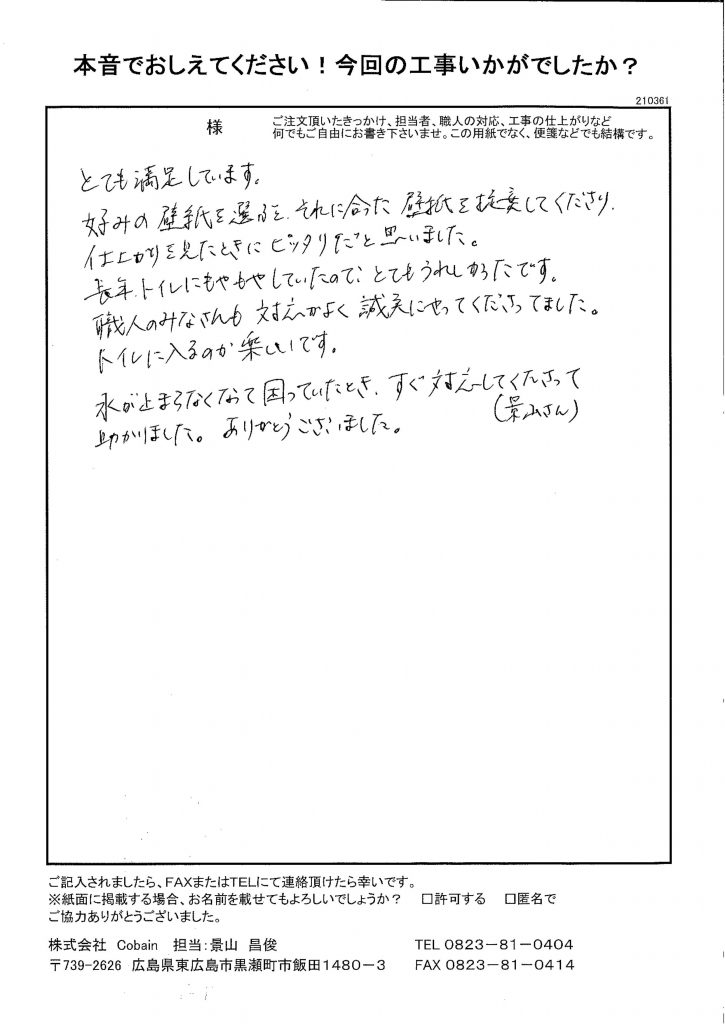 本音でおしえてください！今回の工事いかがでしたか？
210361
様
ご注文頂いたきっかけ、担当者、職人の対応、工事の仕上がりなど
何でもご自由にお書き下さいませ。この用紙でなく、便箋などでも結構です。
とても満足しています。
好みの壁紙を選ぶと、それに合った壁紙を提案してくださり、
仕上がりを見たときにピッタリだと思いました。
長年、トイレにもやもやしていたので、とてもうれしかったです。
職人のみなさんも対応がよく誠実にやってくださってました。
トイレに入るのが楽しいです。
水が止まらなくなって困っていたとき、すぐ対応してくださって
(景山さん)
助かりました。ありがとうございました。
ご記入されましたら、FAXまたはTELにて連絡頂けたら幸いです。
※紙面に掲載する場合、お名前を載せてもよろしいでしょうか？ □許可する □匿名で
ご協力ありがとうございました。
株式会社 Cobain 担当：景山 昌俊 TEL 0823－81－0404
〒739-2626 広島県東広島市黒瀬町市飯田1480－3 FAX 0823－81－0414